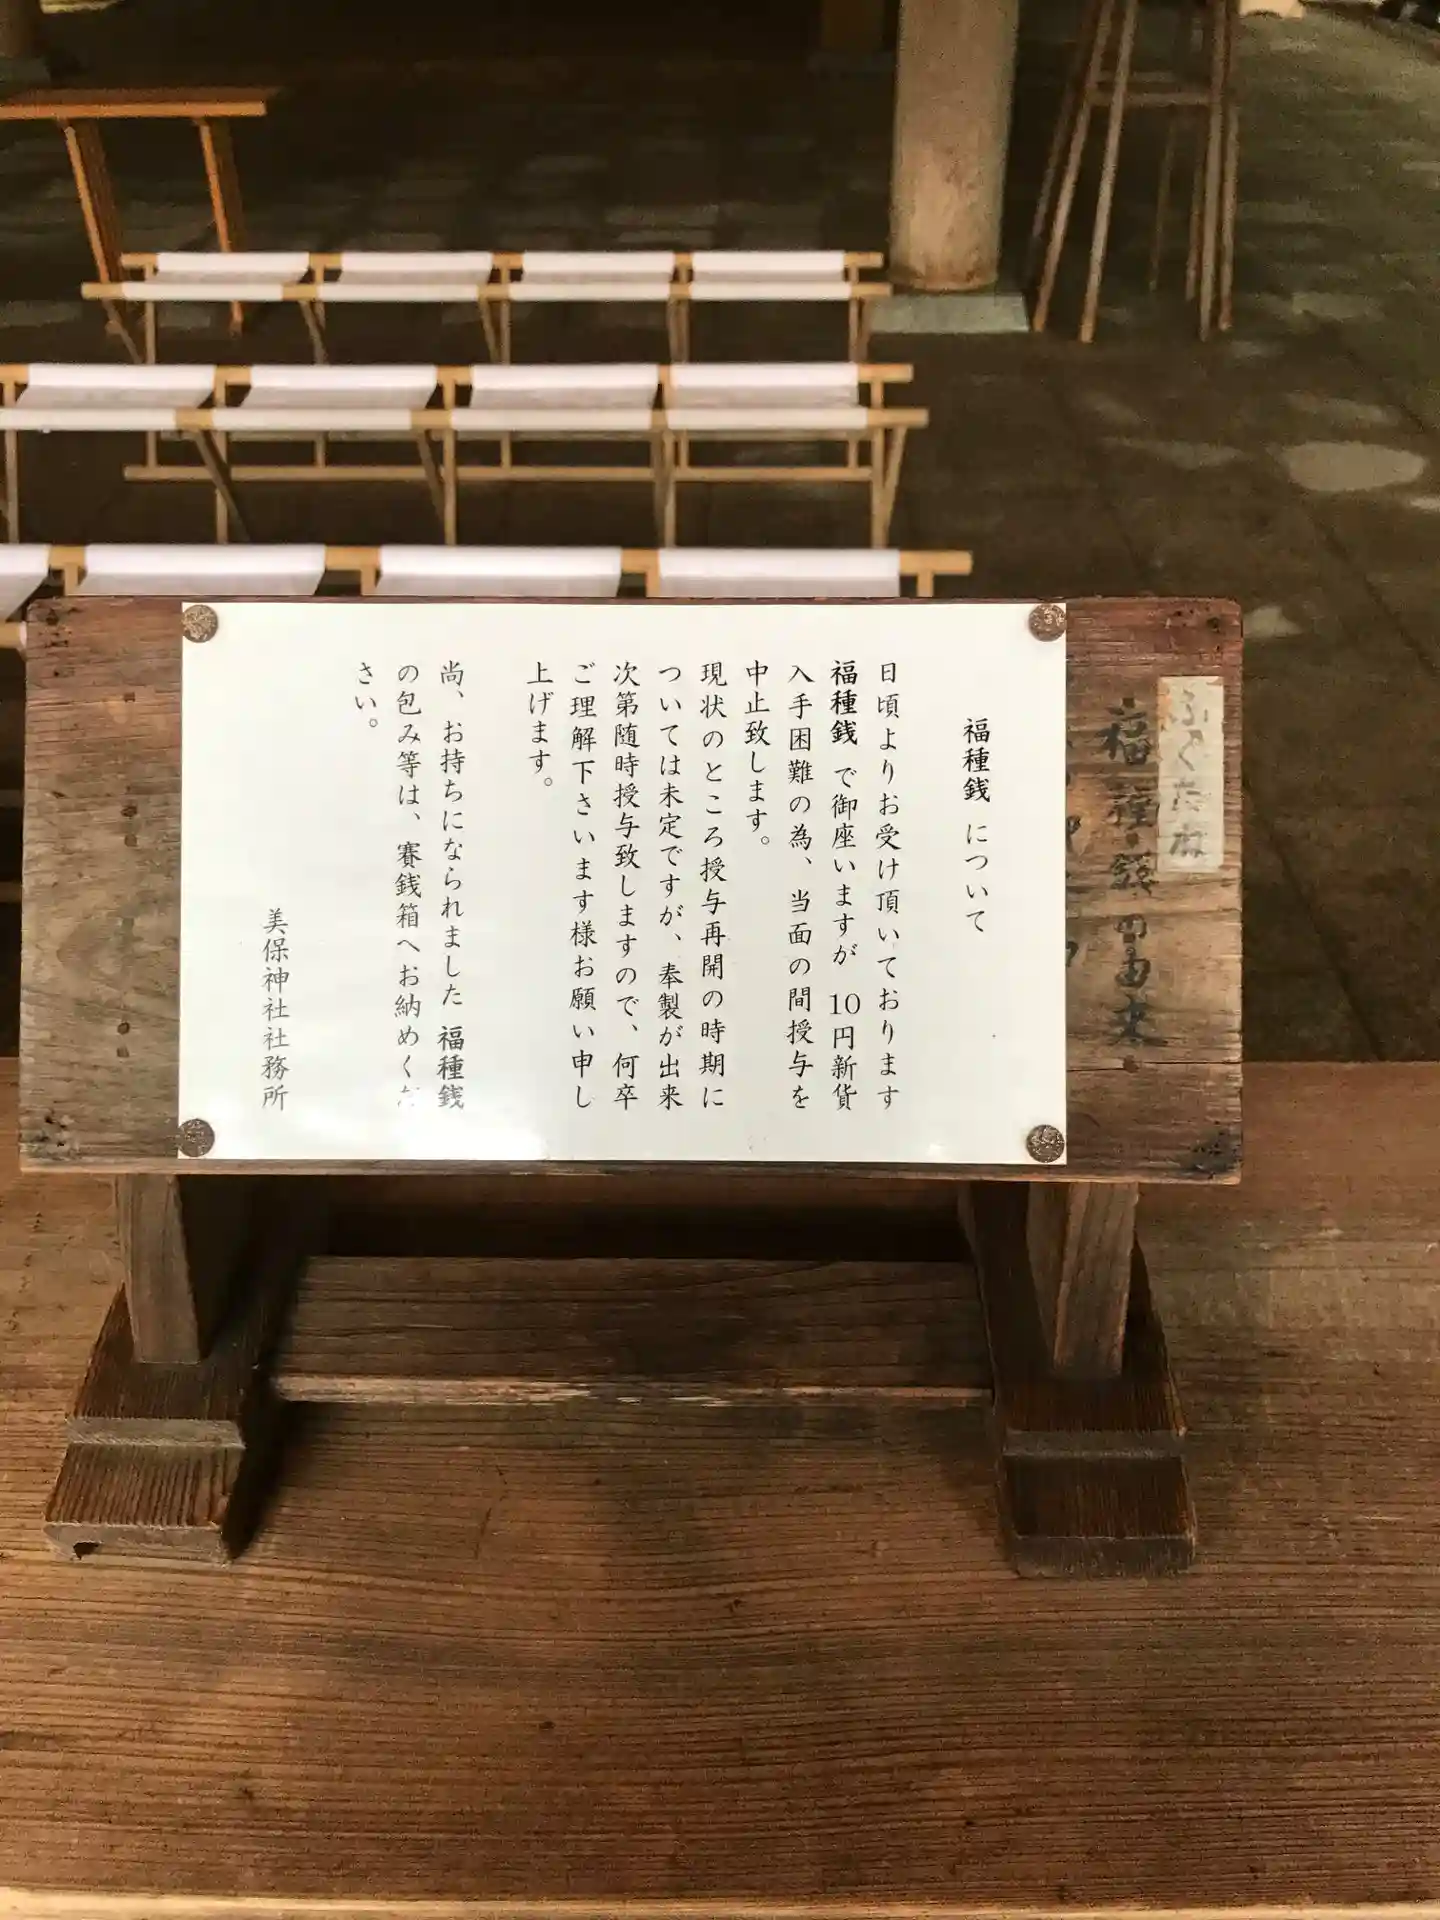 ふくたね
福種銭の由来
福種銭 について
日頃よりお受け頂いております
福種銭 で御座いますが 10円新貨
入手困難の為、当面の間授与を
中止致します。
現状のところ授与再開の時期に
ついては未定ですが、奉製が出来
次第随時授与致しますので、何卒
ご理解下さいます様お願い申し
上げます。
尚、お持ちになられました 福種銭
の包み等は、賽銭箱へお納めくだ
さい。
美保神社社務所